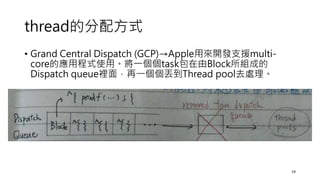 thread的分配方式
• Grand Central Dispatch (GCP)→Apple用來開發支援multi-
core的應用程式使用。將一個個task包在由Block所組成的
Dispatch queue裡面，再一個個丟到Thread pool去處理。
^{ printf(...); }
removed from dispatch
queue
Dispatch
Queue
Block
^{ }
^{ }
^{ }
...
thread
pools